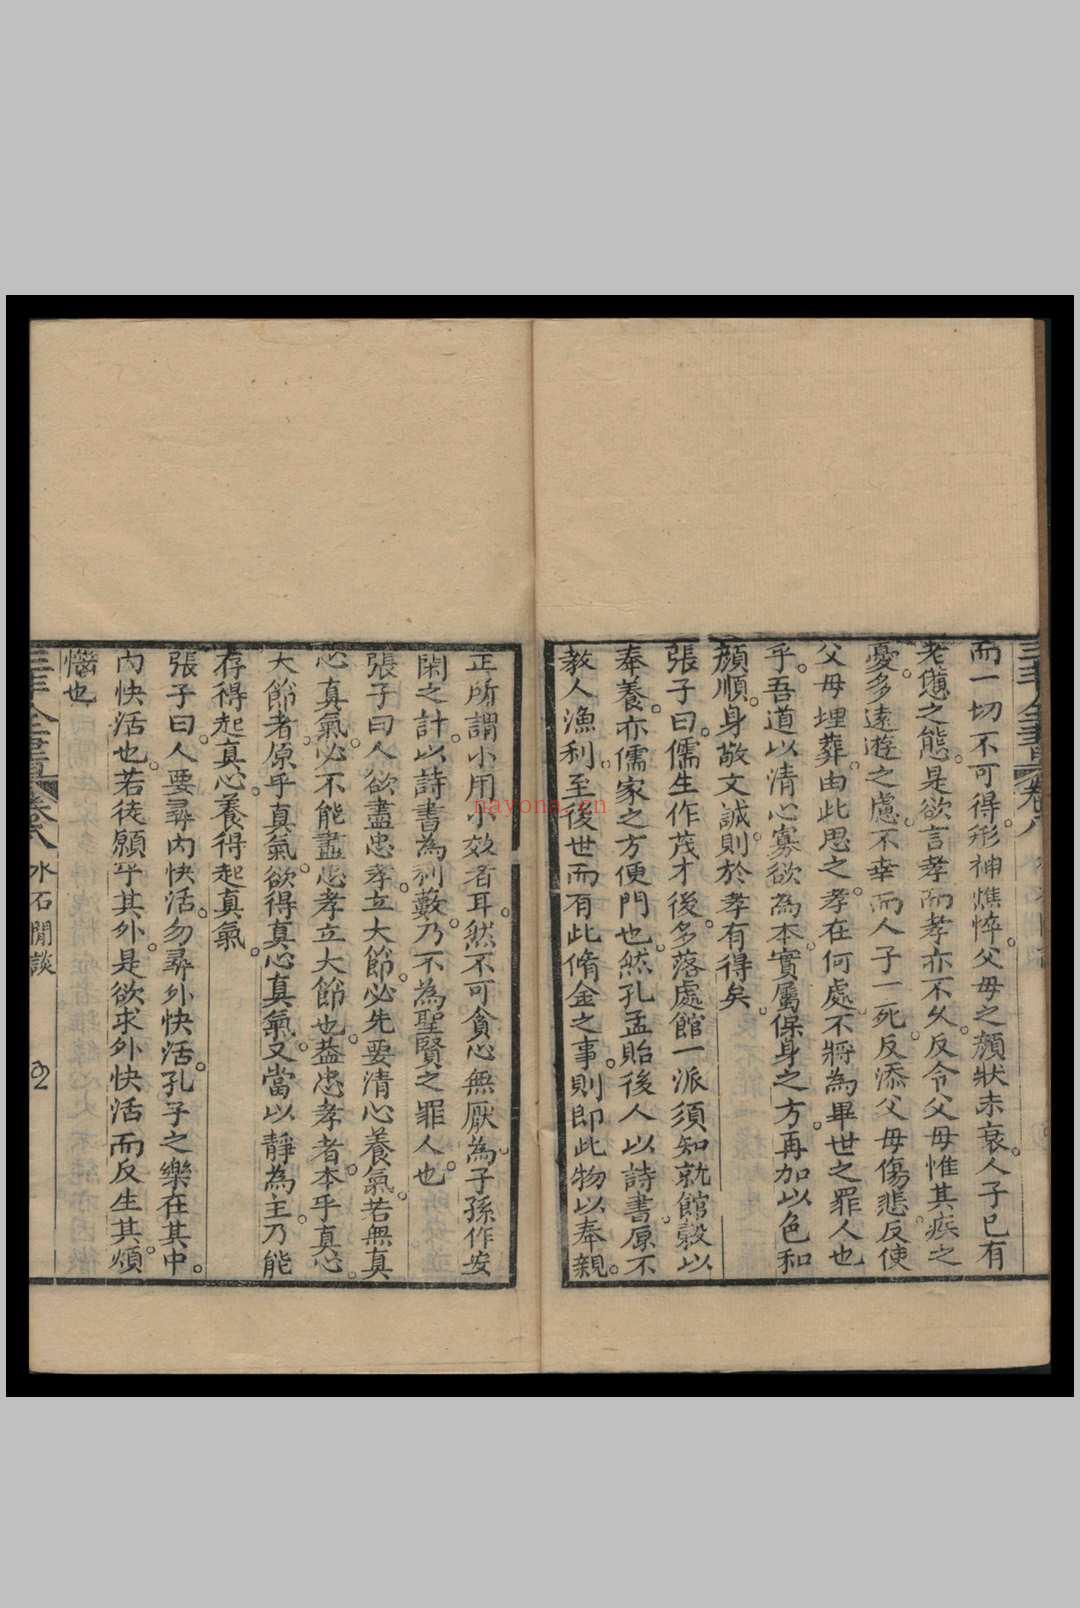 而一切不可得形神憔悴父母之顏狀未衰人子已有
老憊之態是欲言孝而孝亦不久反令父母惟其疾之
憂多遠遊之慮不幸而人子一死反添父母傷悲反使
父母埋葬由此思之孝在何處不將為畢世之罪人也
乎吾道以清心寡欲為本實屬保身之方再加以色和
顏順身敬文誠則於孝有得矣
張子曰儒生作茂才後多落處館一派須知就館穀以
奉養亦儒家之方便門也然孔孟貽後人以詩書原不
教人漁利至後世而有此脩金之事則即此物以奉親
正所謂小用小效者耳然不可貪心無厭為子孫作安
閑之計以詩書為利藪乃不為聖賢之罪人也
張子曰人欲盡忠孝立大節必先要清心養氣若無真
心真氣必不能盡忠孝立大節也蓋忠孝者本乎真心
大節者原乎真氣欲得真心真氣又當以靜為主乃能
存得起真心養得起真氣
張子曰人要尋內快活勿尋外快活孔子之樂在其中
內快活也若徒願乎其外是欲求外快活而反生其煩
惱也
三丰全書 卷八 水石閒談
nayona.cn